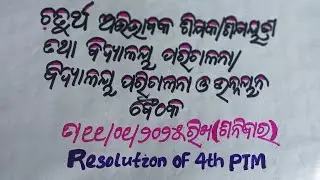 ଚତୁର୍ଥ ଅଭିଭାବକ ଶିକ୍ଷକ/ଶିକ୍ଷୟତ୍ରୀ
ତଥା ବିଦ୍ୟାଳୟ ପରିଚାଳନା/
ବିଦ୍ୟାଳୟ ପରିଚାଳନା ଓ ଉନ୍ନୟନ
ବୈଠକ
ତା୧୧/୦୧/୨୦୨୫ରିଖ(ଶନିବାର)
Resolution of 4th PTM